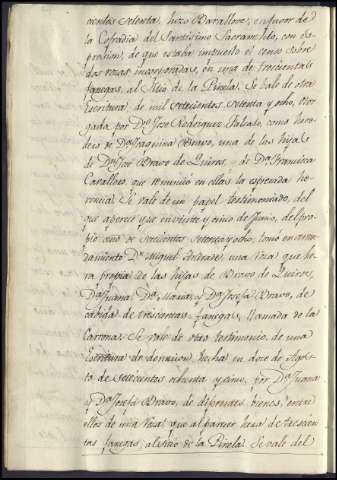 cientos setenta, hizo Cavallero, en favor de
la Cofradia del Santisimo Sacramento, con es-
presion, de que estaba impuesto el censo sobre
dos rozas incorporadas, en una de trescientas
fanegas, al sitio de la Pinela. Se vale de otra
Escritura, de mil setecientos setenta y ocho, otor-
gada por Dn. Jose Rodriguez Salcedo, como here-
dero de Da. Joaquina Bravo, una de las hijas
de Dn. Jose Bravo de Quiros, y de Da. Francisca
Cavallero, que remunió en ellas la espresada he-
rencia. Se vale de un papel testimoniado, del
que aparece que en veinte y cinco de Junio, del pro-
pio año de setecientos setenta y ocho, tomó en arren-
damiento Dn. Miguel Andrade, una roza que he-
ra propia de las hijas de Bravo de Quiros,
Da. Juana, Da. Maria, y Da. Josefa Bravo, de
cabida de trescientas fanegas, llamada de las
Carronas. Se vale de otro testimonio, de una
Escritura de donacion, hecha en doce de Agos-
to de setecientos ochenta y cinco, por Da. Juana
y Da. Josefa Bravo, de diferentes bienes, entre
ellos de una roza, que al parecer hera de trescien-
tas fanegas, al sitio de la Pinela. Se vale del